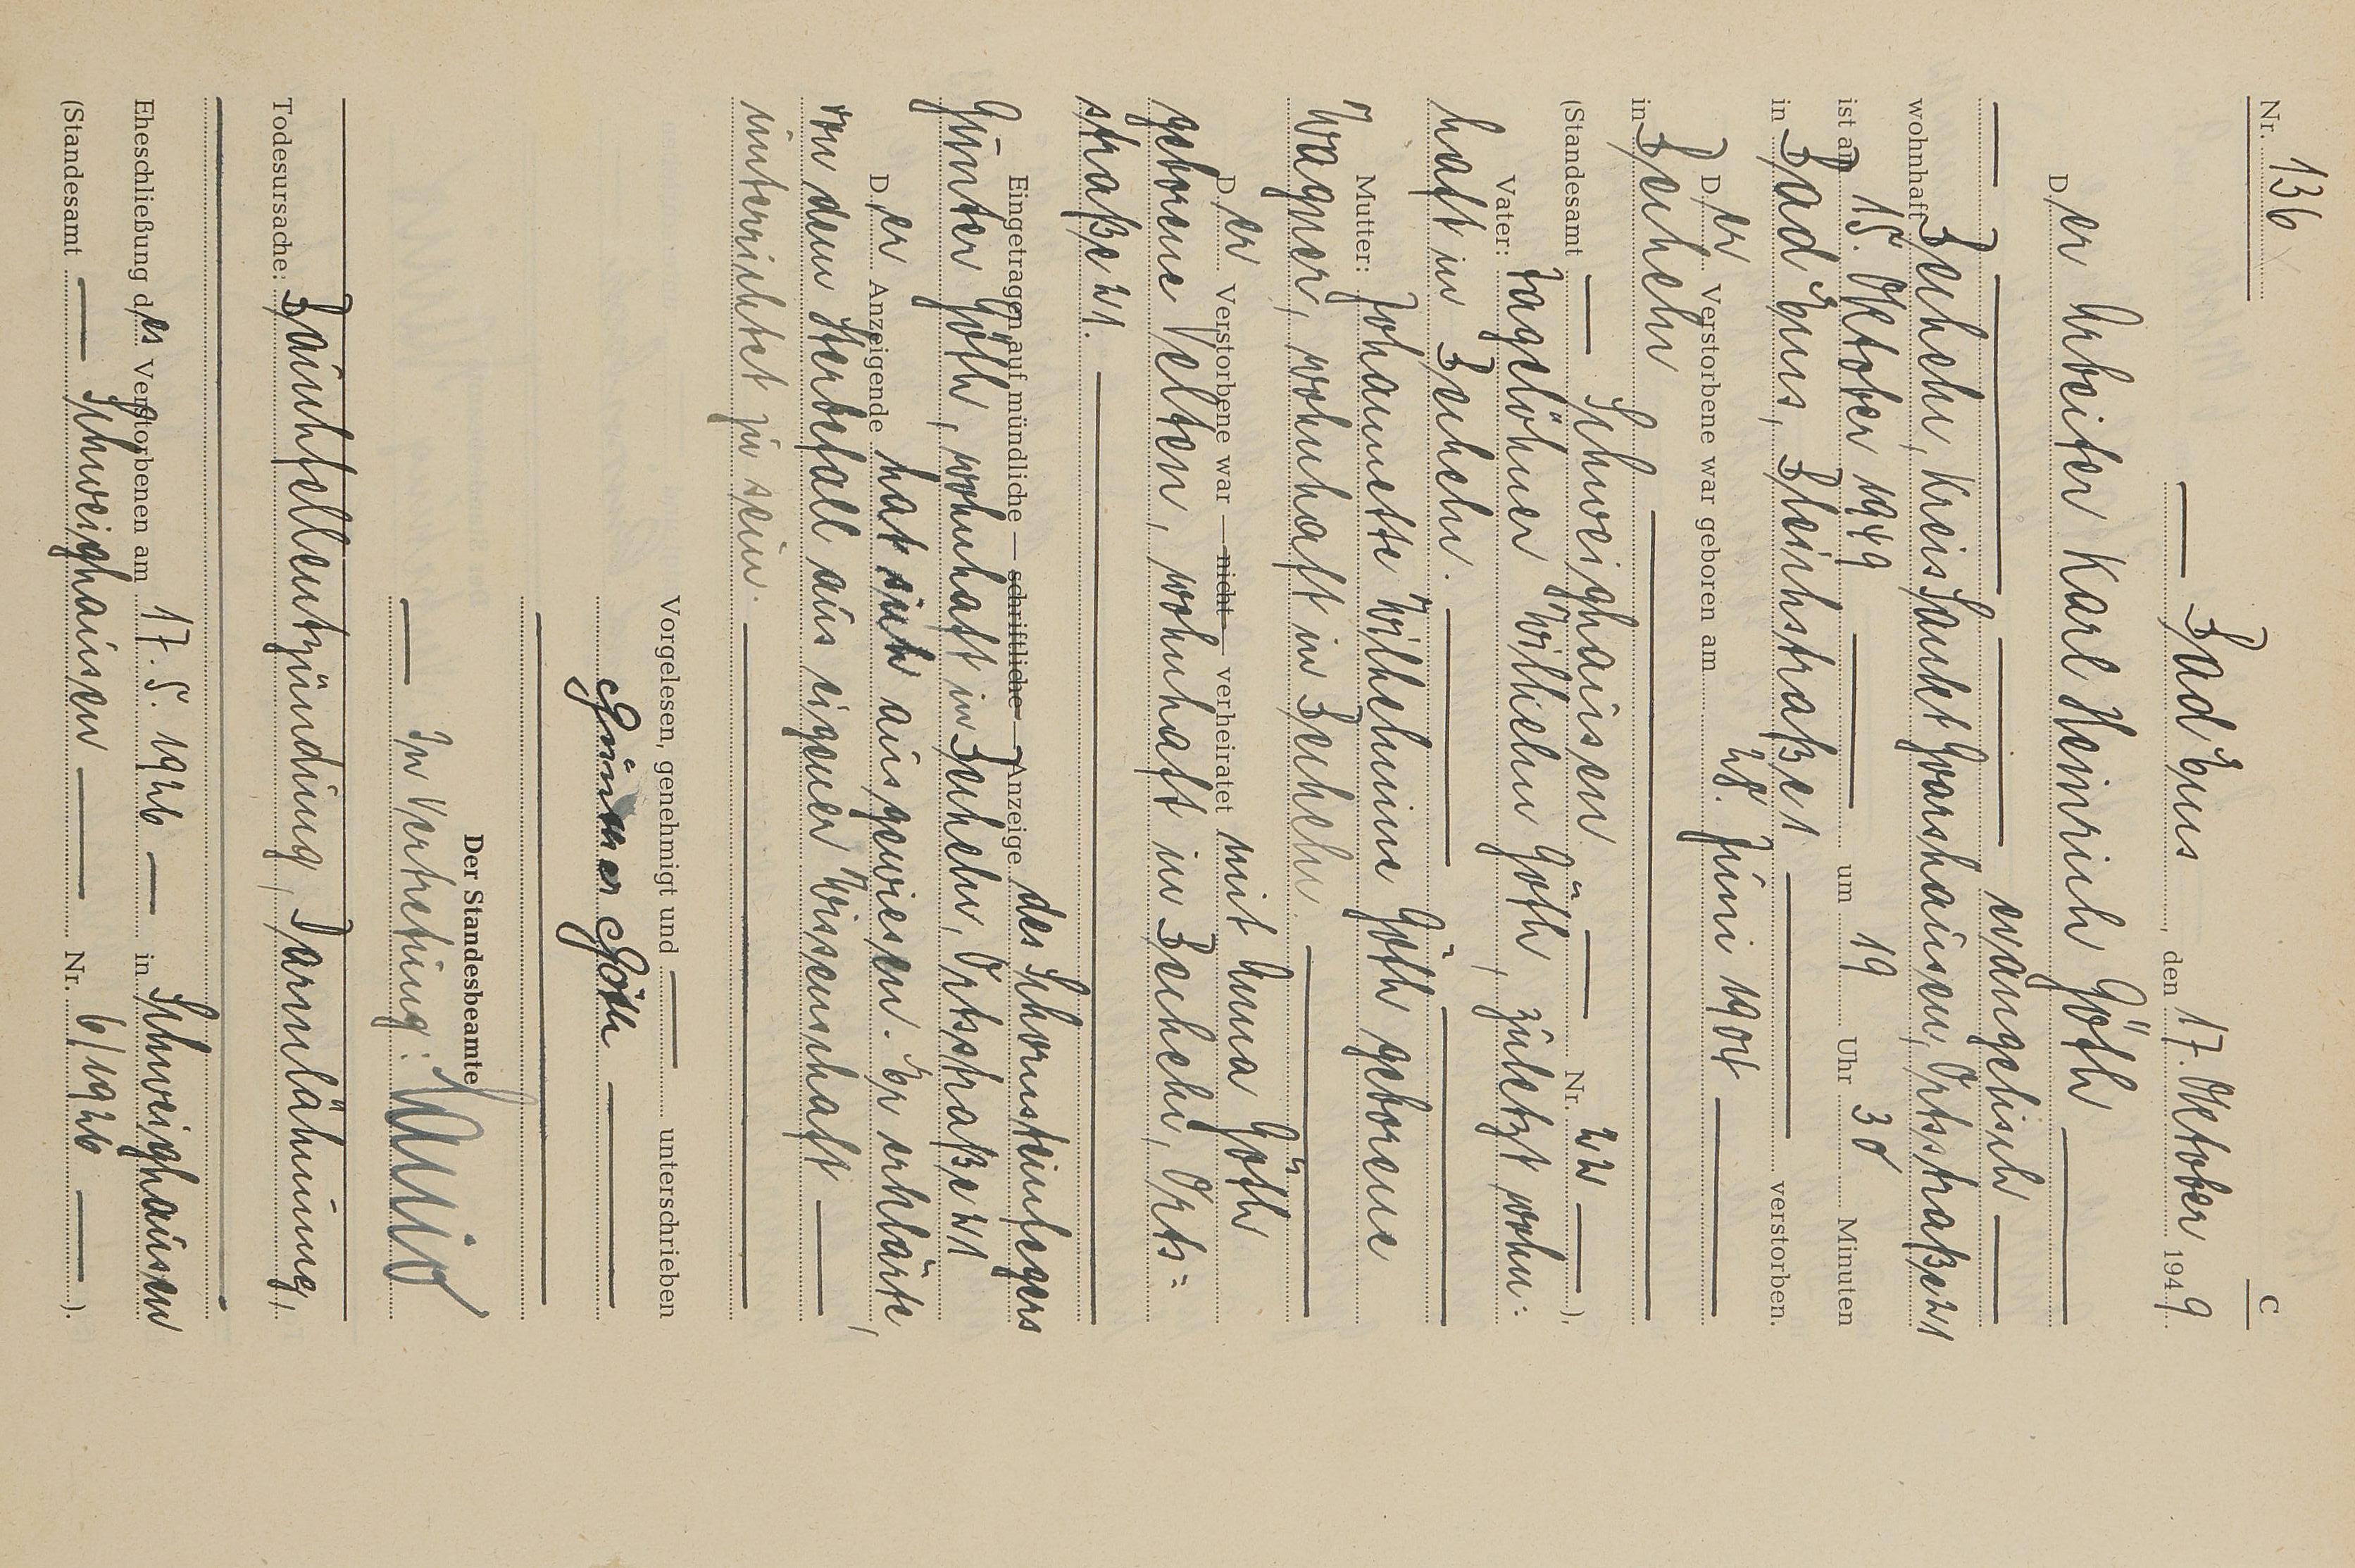 C
Nr. 136
Bad Ems, den 17. Oktober 1949
Der Arbeiter Karl Heinrich Göth
evangelisch
wohnhaft Becheln, Kreis Sankt Goarshausen, Ortsstraße 21
ist am 15. Oktober 1949 um 19 Uhr 30 Minuten
in Bad Ems, Bleichstraße 1 verstorben.
Der Verstorbene war geboren am 28. Juni 1902
in Becheln
(Standesamt Schweighausen Nr. 22 ),
Vater: Tagelöhner Wilhelm Göth, zuletzt wohn=
haft in Becheln.
Mutter: Johannette Wilhelmine Göth geborene
Wagner, wohnhaft in Becheln.
Der Verstorbene war — nicht — verheiratet mit Anna Göth
geborene Velten, wohnhaft in Becheln, Orts=
straße 21.
Eingetragen auf mündliche — schriftliche — Anzeige des Schornsteinfegers
Günter Göth, wohnhaft in Becheln, Ortsstraße 21
Der Anzeigende hat sich ausgewiesen. Er erklärte,
von dem Sterbefall aus eigener Wissenschaft
unterrichtet zu sein.
Vorgelesen, genehmigt und unterschrieben
Göth
Der Standesbeamte
In Vertretung:
Todesursache: Bauchfellentzündung, Darmlähmung,
Eheschließung des Verstorbenen am 17. 5. 1926 in Schweighausen
(Standesamt Schweighausen Nr. 6/1926 ).